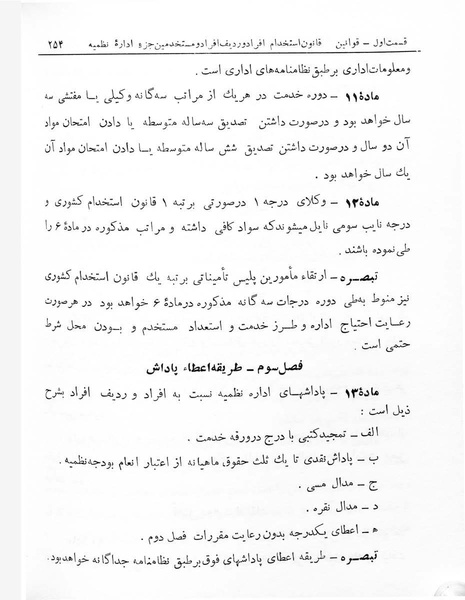 قسمت اول - قوانین قانون استخدام افراد و ردیف افراد و مستخدمین جزء ادارهٔ نظمیه ۲۵۴
ومعلومات اداری بر طبق نظامنامه‌های اداری است .
مادهٔ ۱۱ - دوره خدمت در هر یک از مراتب سه گانه وکیلی یا مفتشی سه
سال خواهد بود و درصورت داشتن تصدیق سه ساله متوسطه یا دادن امتحان مواد
آن دو سال و درصورت داشتن تصدیق شش ساله متوسطه یا دادن امتحان مواد آن
یك سال خواهد بود .
مادهٔ ۱۲ - وکلای درجه ۱ درصورتی برتبه ۱ قانون استخدام کشوری و
درجه نایب سومی نایل میشوند که سواد کافی داشته و مراتب مذکوره در مادهٔ ۶ را
طی نموده باشند .
تبصره - ارتقاء مأمورین پلیس تأمیناتی برتبه یك قانون استخدام کشوری
نیز منوط به طی دوره درجات سه گانه مذکوره در مادهٔ ۶ خواهد بود در هرصورت
رعایت احتیاج اداره و طرز خدمت و استعداد مستخدم و بودن محل شرط
حتمی است .
فصل سوم - طریقه اعطاء پاداش
مادهٔ ۱۳ - پاداشهای اداره نظمیه نسبت به افراد و ردیف افراد بشرح
ذیل است :
الف - تمجید کتبی با درج در ورقه خدمت .
ب - پاداش نقدی تا یك ثلث حقوق ماهیانه از اعتبار انعام بودجه نظمیه .
ج - مدال مسی .
د - مدال نقره .
ه - اعطای یکدرجه بدون رعایت مقررات فصل دوم .
تبصره - طریقه اعطای پاداشهای فوق بر طبق نظامنامه جداگانه خواهد بود.